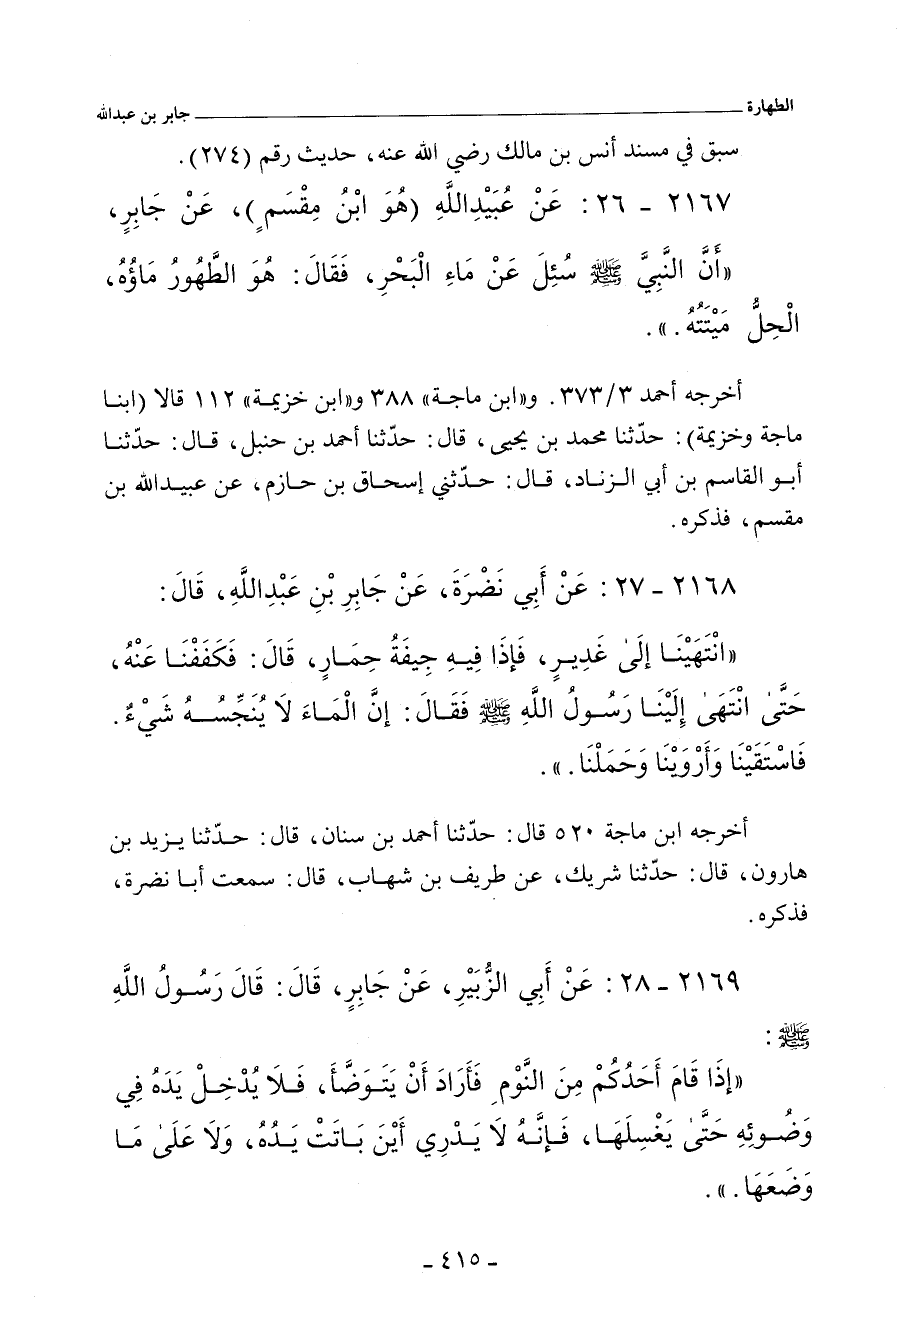 الطهارة ــــــــــــــــــــــــــــــــ جابر بن عبدالله
سبق في مسند أنس بن مالك رضي الله عنه، حديث رقم (٢٧٤).
٢١٦٧ - ٢٦: عَنْ عُبَيْدِاللَّهِ (هُوَ ابْنُ مِقْسَمٍ)، عَنْ جَابِرٍ،
«أَنَّ النَّبِيَّ ﷺ سُئِلَ عَنْ مَاءِ الْبَحْرِ، فَقَالَ: هُوَ الطَّهُورُ مَاؤُهُ،
الْحِلُّ مَيْتَتُهُ.».
أخرجه أحمد ٣/٣٧٣. و«ابن ماجة» ٣٨٨ و«ابن خزيمة» ١١٢ قالا (ابنا
ماجة وخزيمة): حدّثنا محمد بن يحيى، قال: حدّثنا أحمد بن حنبل، قال: حدّثنا
أبو القاسم بن أبي الزناد، قال: حدّثني إسحاق بن حازم، عن عبيدالله بن
مقسم، فذكره.
٢١٦٨ - ٢٧: عَنْ أَبِي نَضْرَةَ، عَنْ جَابِرِ بْنِ عَبْدِاللَّهِ، قَالَ:
«انْتَهَيْنَا إِلَىٰ غَدِيرٍ، فَإِذَا فِيهِ جِيفَةُ حِمَارٍ، قَالَ: فَكَفَفْنَا عَنْهُ،
حَتَّىٰ انْتَهَىٰ إِلَيْنَا رَسُولُ اللَّهِ ﷺ فَقَالَ: إِنَّ الْمَاءَ لَا يُنَجِّسُهُ شَيْءٌ.
فَاسْتَقَيْنَا وَأَرْوَيْنَا وَحَمَلْنَا.».
أخرجه ابن ماجة ٥٢٠ قال: حدّثنا أحمد بن سنان، قال: حدّثنا يزيد بن
هارون، قال: حدّثنا شريك، عن طريف بن شهاب، قال: سمعت أبا نضرة،
فذكره.
٢١٦٩ - ٢٨: عَنْ أَبِي الزُّبَيْرِ، عَنْ جَابِرٍ، قَالَ: قَالَ رَسُولُ اللَّهِ
ﷺ:
«إِذَا قَامَ أَحَدُكُمْ مِنَ النَّوْمِ فَأَرَادَ أَنْ يَتَوَضَّأَ، فَلَا يُدْخِلْ يَدَهُ فِي
وَضُوئِهِ حَتَّىٰ يَغْسِلَهَا، فَإِنَّهُ لَا يَدْرِي أَيْنَ بَاتَتْ يَدُهُ، وَلَا عَلَىٰ مَا
وَضَعَهَا.».
- ٤١٥ -